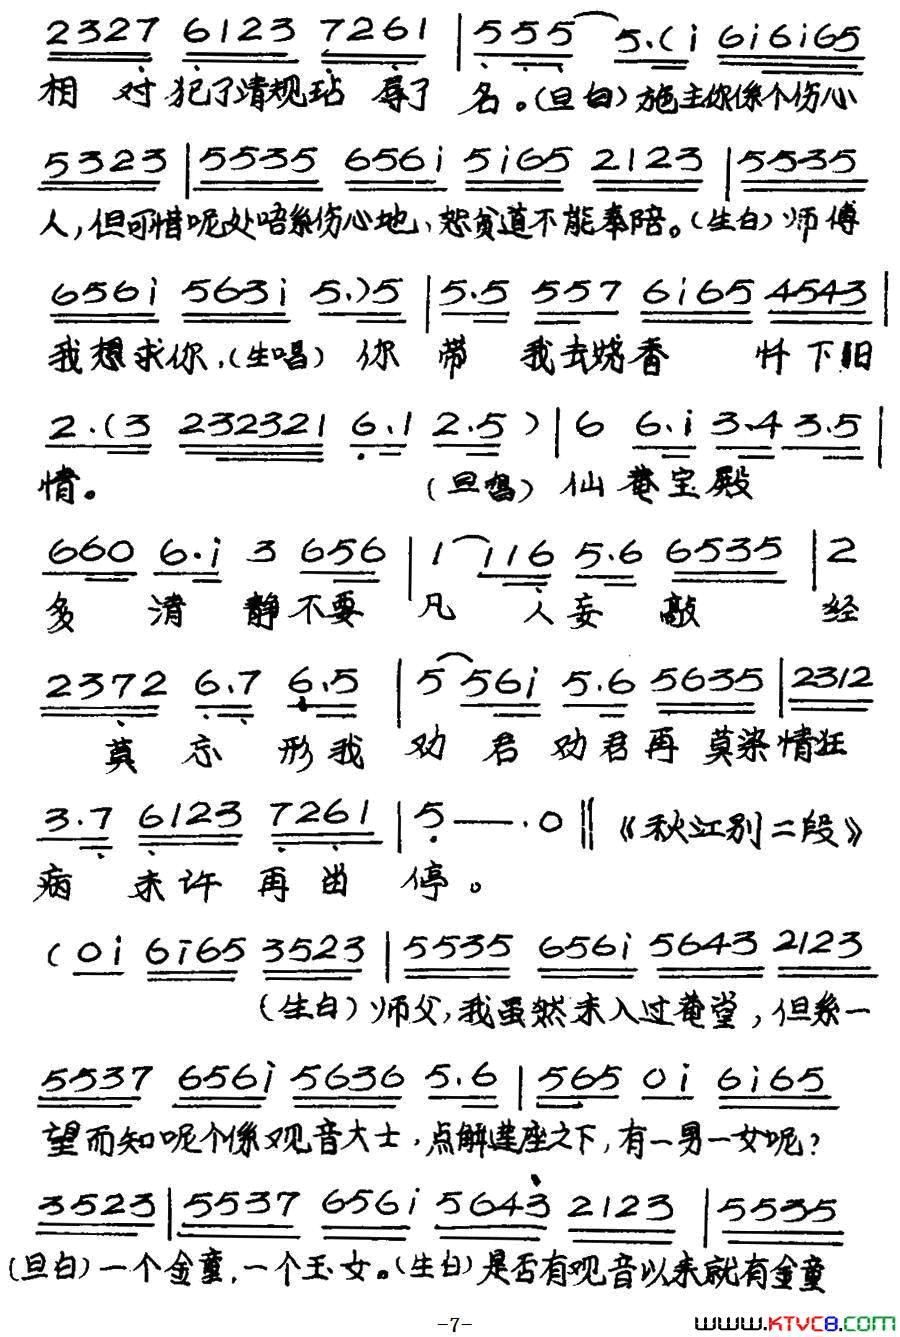 2327 6123 7261 | 555 5.(i 6i6i65
相 对 犯了清规玷 辱了 名。(旦白)施主你係个伤心
5323 | 5535 656i 5i65 2123 | 5535
人,但可惜呢处唔系伤心地、恕贫道不能奉陪。(生白)师傅
656i 563i 5.)5 | 5.5 557 6i65 4543 |
我想求你,(生唱) 你 带 我去烧香 忏下旧
2.(3 232321 6.1 2.5 ) | 6 6.i 3.4 3.5 |
情。 (旦唱) 仙 菴宝殿
660 6.i 3 656 | 1 116 5.6 6535 | 2
多 清 静不要 凡 人妄 敲 经
2372 6.7 6.5 | 5 56i 5.6 5635 | 2312
莫 忘 形我 劝 君 劝君再 莫染情狂
3.7 6123 7261 | 5 —— . 0 || 《秋江别二段》
病 未许 再 留 停。
(0i 6i65 3523 | 5535 656i 5643 2123
(生白)师父,我虽然未入过菴堂,但系一
5537 656i 5636 5.6 | 565 0i 6i65
望而知呢个係观音大士,点解莲座之下,有一男一女呢?
3523 | 5537 656i 5643 2123 | 5535
(旦白)一个金童,一个玉女。(生白)是否有观音以来就有金童
-7-
WWW.KTVC8.COM